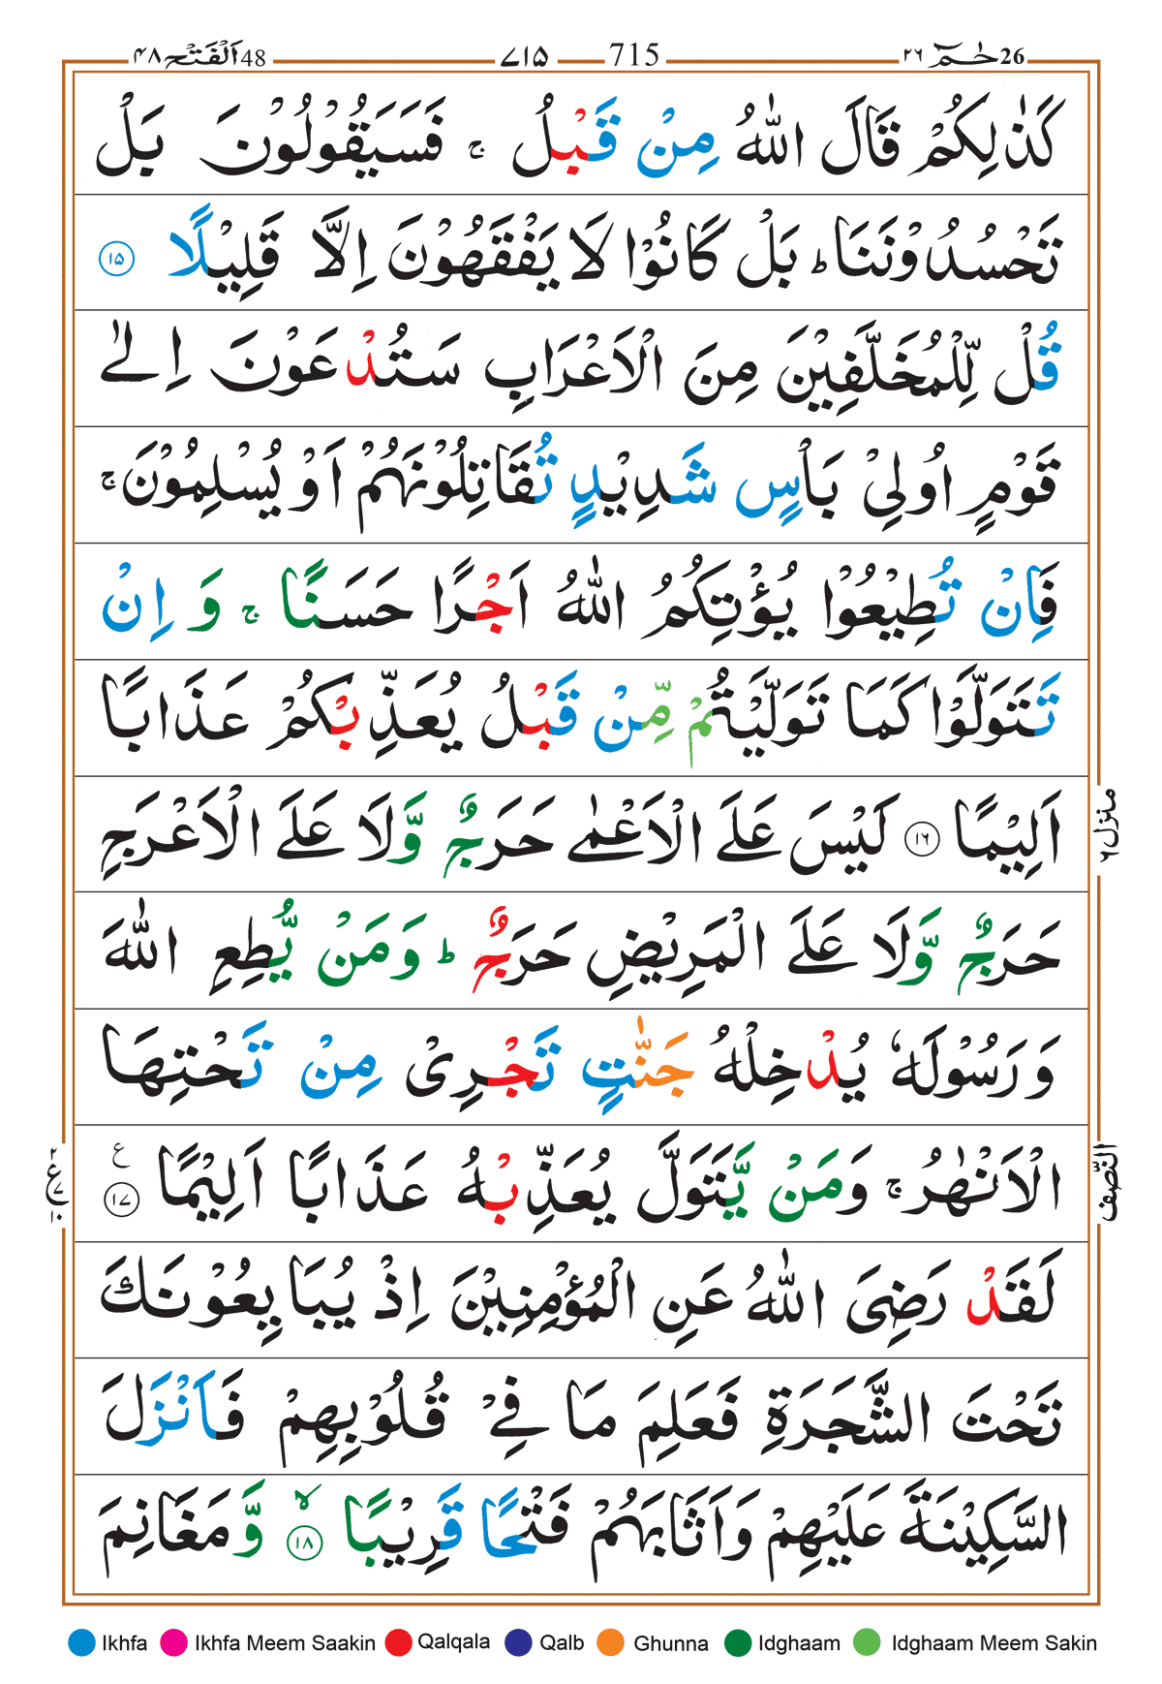 48 اَلْفَتْح ٤٨ 715 ٧١٥ 26 حٰمٓ ٢٦
كَذٰلِكُمْ قَالَ اللّٰهُ مِنْ قَبْلُ ۚ فَسَيَقُوْلُوْنَ بَلْ
تَحْسُدُوْنَنَا ؕ بَلْ كَانُوْا لَا يَفْقَهُوْنَ اِلَّا قَلِيْلًا ۝۱۵
قُلْ لِّلْمُخَلَّفِيْنَ مِنَ الْاَعْرَابِ سَتُدْعَوْنَ اِلٰى
قَوْمٍ اُولِيْ بَاْسٍ شَدِيْدٍ تُقَاتِلُوْنَهُمْ اَوْ يُسْلِمُوْنَ ۚ
فَاِنْ تُطِيْعُوْا يُؤْتِكُمُ اللّٰهُ اَجْرًا حَسَنًا ۚ وَ اِنْ
تَتَوَلَّوْا كَمَا تَوَلَّيْتُمْ مِّنْ قَبْلُ يُعَذِّبْكُمْ عَذَابًا
اَلِيْمًا ۝۱۶ لَيْسَ عَلَى الْاَعْمٰى حَرَجٌ وَّلَا عَلَى الْاَعْرَجِ
حَرَجٌ وَّلَا عَلَى الْمَرِيْضِ حَرَجٌ ؕ وَمَنْ يُّطِعِ اللّٰهَ
وَرَسُوْلَهٗ يُدْخِلْهُ جَنّٰتٍ تَجْرِيْ مِنْ تَحْتِهَا
الْاَنْهٰرُ ۚ وَمَنْ يَّتَوَلَّ يُعَذِّبْهُ عَذَابًا اَلِيْمًا ۝۱۷ ع
لَقَدْ رَضِيَ اللّٰهُ عَنِ الْمُؤْمِنِيْنَ اِذْ يُبَايِعُوْنَكَ
تَحْتَ الشَّجَرَةِ فَعَلِمَ مَا فِيْ قُلُوْبِهِمْ فَاَنْزَلَ
السَّكِيْنَةَ عَلَيْهِمْ وَاَثَابَهُمْ فَتْحًا قَرِيْبًا ۝۱۸ ۙ وَّمَغَانِمَ
منزل ٦
النّصف
Ikhfa Ikhfa Meem Saakin Qalqala Qalb Ghunna Idghaam Idghaam Meem Sakin